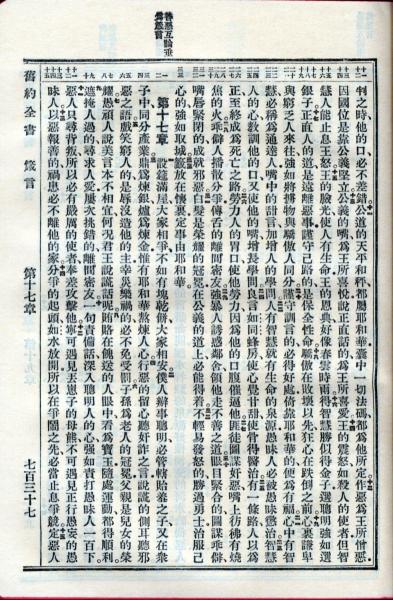 善惡互論垂
判之時他的口必不差錯公道的天平和秤都屬耶和華囊中一切法碼都爲他所定作惡爲王所憎惡
因國位是靠公義堅立公義的嘴爲王所喜悅說正直話的爲王所喜愛王的震怒如殺人的使者但智
慧人能止息王怒王的臉光使人有生命王的恩典好像春雲時雨得智慧勝似得金子選聰明強如選
銀子正直人的道是遠離惡事謹守己路的是保全性命驕傲在敗壞以先狂心在跌倒之前心裏謙卑
與窮乏人來往強如將擄物與驕傲人同分謹守訓言的必得好處倚靠耶和華的便爲有福心中有智
慧必稱爲通達人嘴中的甜言加增人的學問人有智慧就有生命的泉源愚昧人必被愚昧懲治智慧
人的心教訓他的口又使他的嘴增長學問良言如同蜂房使心覺甘甜使骨得醫治有一條路人以爲
正至終成爲死亡之路勞力人的胃口使他勞力因爲他的口腹催逼他匪徒圖謀奸惡嘴上彷彿有燒
焦的火乖僻人播散分爭傳舌的離間密友強暴人誘惑鄰舍領他走不善之道眼目緊合的圖謀乖僻
嘴唇緊閉的成就邪惡白髮是榮耀的冠冕在公義的道上必能得着不輕易發怒的勝過勇士治服己
心的強如取城籤放在懷裏定事由耶和華
第十七章 設筵滿屋大家相爭不如有塊乾餅大家相安僕人辦事聰明必管轄貽羞之子又在衆
子中同分產業鼎爲煉銀爐爲煉金惟有耶和華熬煉人心行惡的留心聽奸詐之言說謊的側耳聽邪
惡之語戲笑窮人的是辱沒造他的主幸災樂禍的必不免受罰子孫爲老人的冠冕父親是兒女的榮
耀愚頑人說美言本不相宜何況君王說謊話呢賄賂在餽送的人眼中看爲寶玉隨處運動都得順利
遮掩人過的尋求人愛屢次挑錯的離間密友一句責備話深入聰明人的心強如責打愚昧人一百下
惡人只尋背叛所以必有嚴厲的使者奉差攻擊他寧可遇見丟崽子的母熊不可遇見正行愚妄的愚
昧人以惡報善的禍患必不離他的家分爭的起頭如水放開所以在爭鬧之先必當止息爭競定惡人
舊約全書 箴言 第十七章 七百三十七